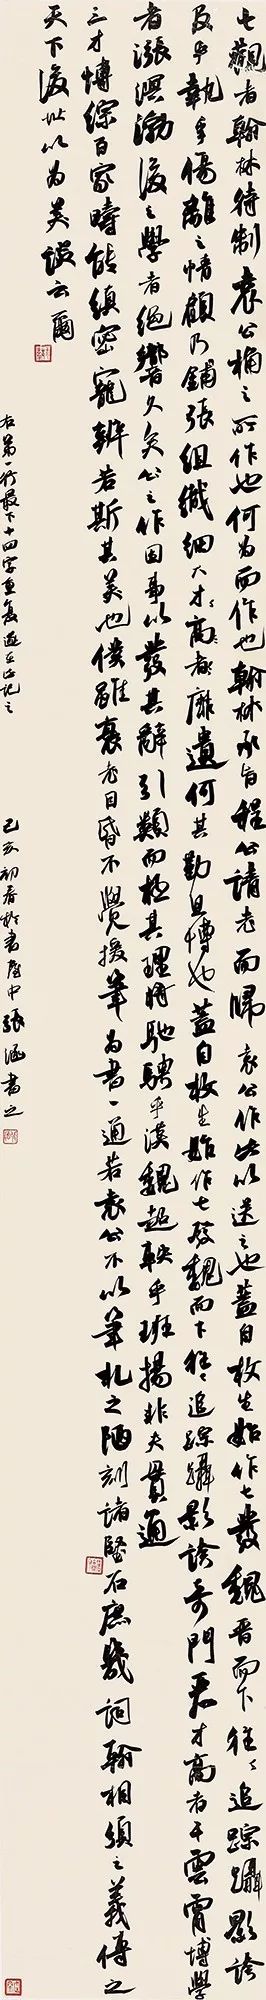 七觀者翰林待制袁公桷之所作也何為而作也翰林承旨程公請老而歸袁公作此以送之也蓋自枚生始作七發魏晉而下往々追踪躡影誇
及乎執手傷離之情顧乃鋪張組織細大才々高者靡遺何其勤且博也蓋自枚生始作七發魏而下往々追踪躡影誇奇門異才高者干雲霄博學
者漲溟渤後之學者絕響久矣公之作因事以發其辭引類而極其理將馳騁乎漢魏超軼乎班揚非夫貫通
三才博綜百家疇能縝密寵辨若斯其美也僕雖衰老目昏不覺援筆為書一通若袁公不以筆札之陋刻諸堅石庶幾詞翰相須之義傳之
天下後世以為美談云爾
右第一行最下十四字重複遊在此記之
己亥初春於書屋中張涵書之